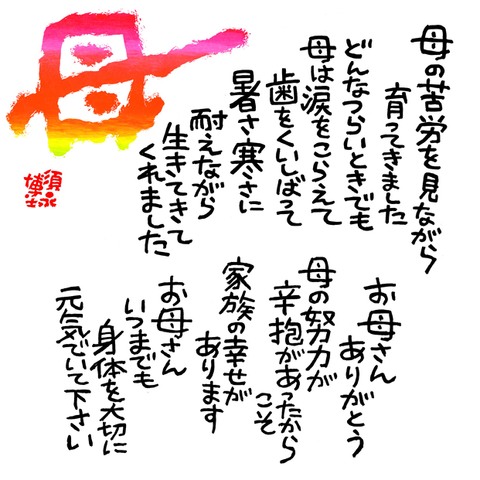 母
母の苦労を見ながら
育ってきました
どんなつらいときでも
母は涙をこらえて
歯をくいしばって
暑さ寒さに
耐えながら
生きてきて
くれました
お母さん
ありがとう
母の努力が
辛抱があったから
こそ
家族の幸せが
あります
お母さん
いつまでも
身体を大切に
元気でいて下さい
須永
博士